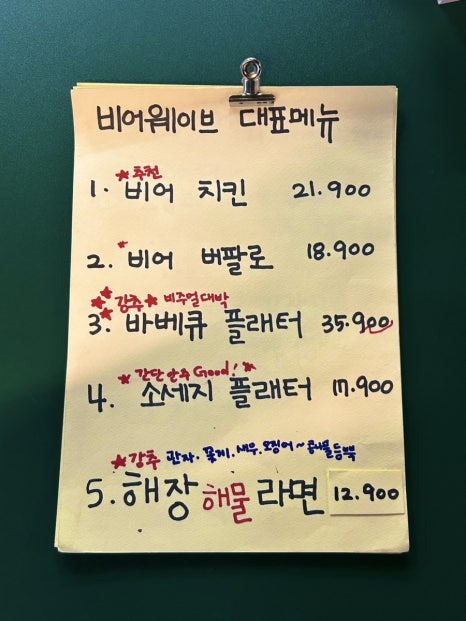 비어웨이브 대표메뉴
★추천
1. 비어 치킨 21.900
★
2. 비어 버팔로 18.900
★★★강추★ 비주얼대박
3. 바베큐 플래터 35.900
★간단안주 Good!★
4. 소세지 플래터 17.900
★강추 관자. 꽃게. 새우. 오징어~ 콩나물듬뿍
5. 해장 해물 라면 12.900